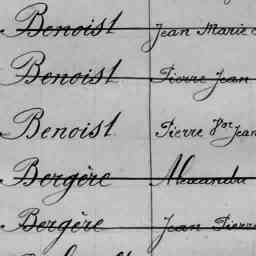 Benoist Jean Marie
Benoist Pierre Jean
Benoist Pierre Jean
Bergère Alexandre
Bergère Jean Pierre